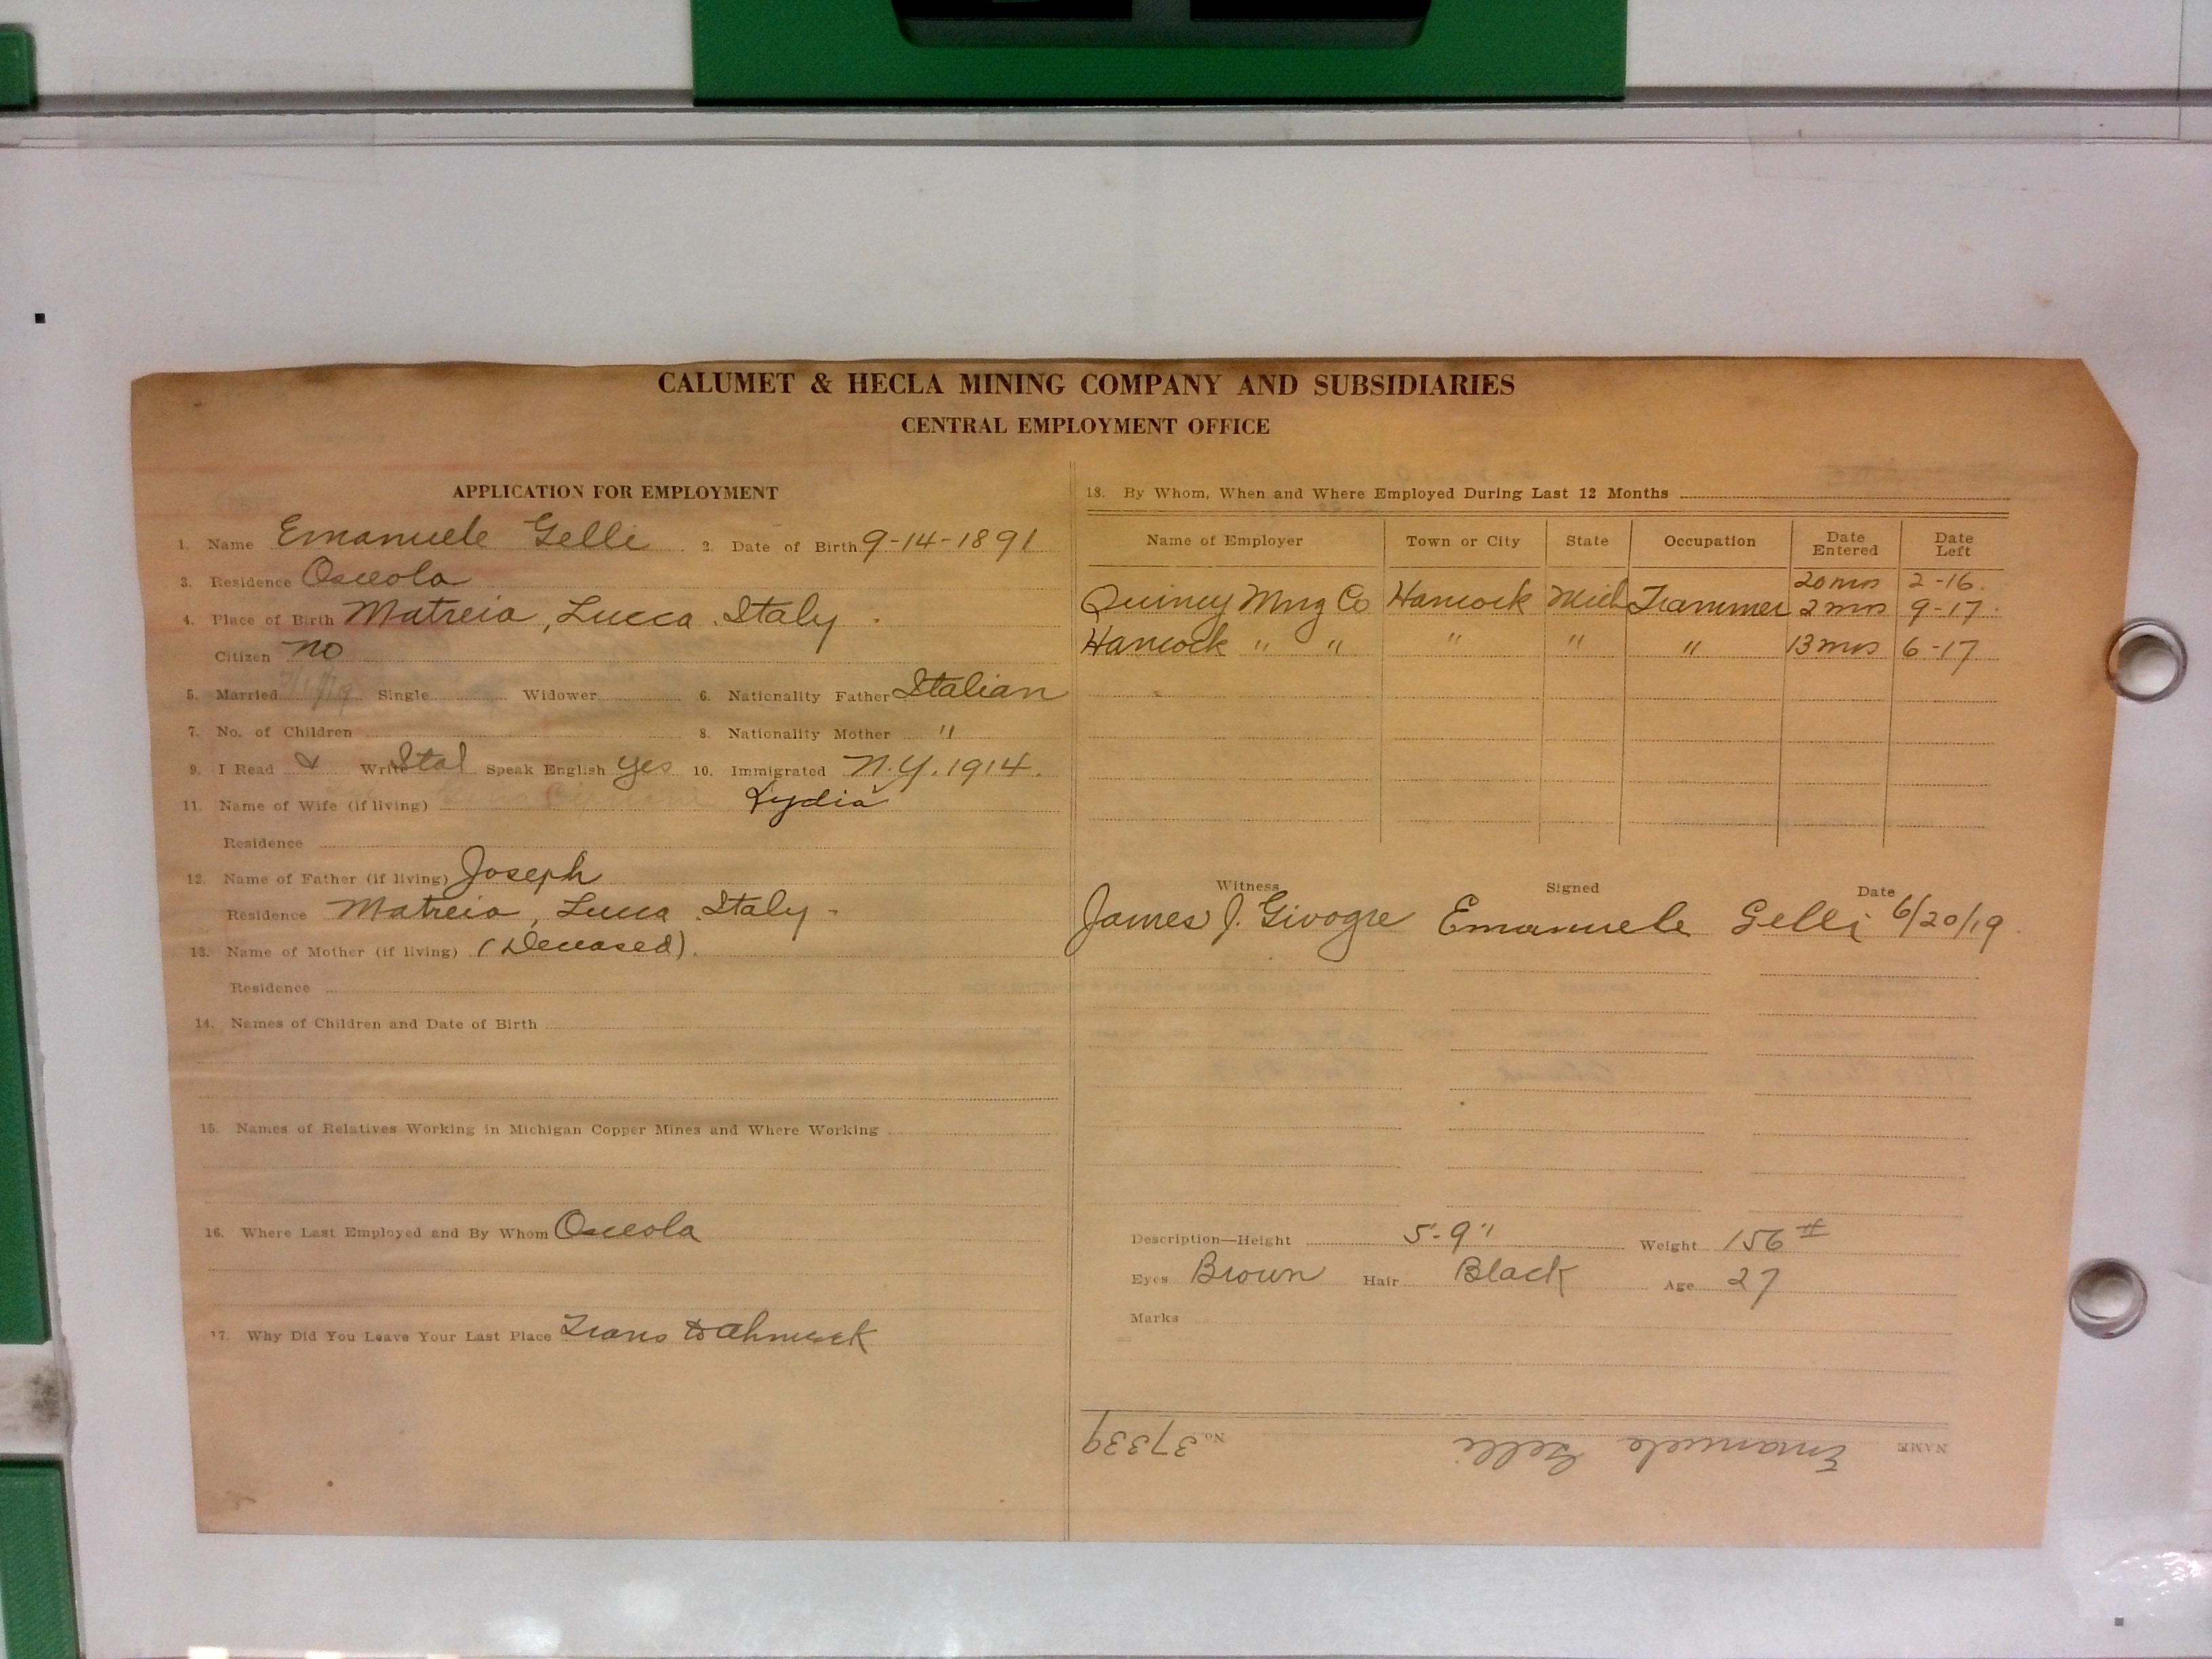 CALUMET & HECLA MINING COMPANY AND SUBSIDIARIES
CENTRAL EMPLOYMENT OFFICE
APPLICATION FOR EMPLOYMENT
1. Name Emanuele Gelli 2. Date of Birth 9-14-1891
3. Residence Osceola
4. Place of Birth Matreia, Lucca. Italy.
Citizen no
5. Married Single Widower 6. Nationality Father Italian
7. No. of Children 8. Nationality Mother "
9. I Read & Write Ital Speak English yes 10. Immigrated N.Y. 1914.
11. Name of Wife (if living) Lydia
Residence
12. Name of Father (if living) Joseph
Residence Matreia, Lucca. Italy-
13. Name of Mother (if living) (Deceased).
Residence
14. Names of Children and Date of Birth
15. Names of Relatives Working in Michigan Copper Mines and Where Working
16. Where Last Employed and By Whom Osceola
17. Why Did You Leave Your Last Place Trans to Ahmeek
18. By Whom, When and Where Employed During Last 12 Months
Name of Employer Town or City State Occupation Date Entered Date Left
20 mos 2-16.
Quincy Mng Co Hancock Mich Trammer 2 mos 9-17.
Hancock " " " " " 13 mos 6-17
Witness Signed Date
James J. Givogre Emanuele Gelli 6/20/19.
Description—Height 5'-9" Weight 156 #
Eyes Brown Hair Black Age 27
Marks
NAME Emanuele Gelli No. 37339